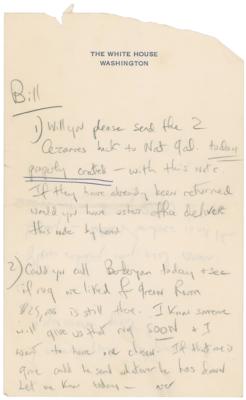 THE WHITE HOUSE
WASHINGTON
Bill
1) Will you please send the 2
Cezannes back to Nat Gal. today
properly crated – with this note
If they have already been returned
would you have usher office deliver
this note by hand
2) Could you call today + see
if rug we liked for Green Room
is still there. I know someone
will give us that rug SOON + I
want to have one chosen. If that one is
gone could he send whatever he has down
Let me know today –